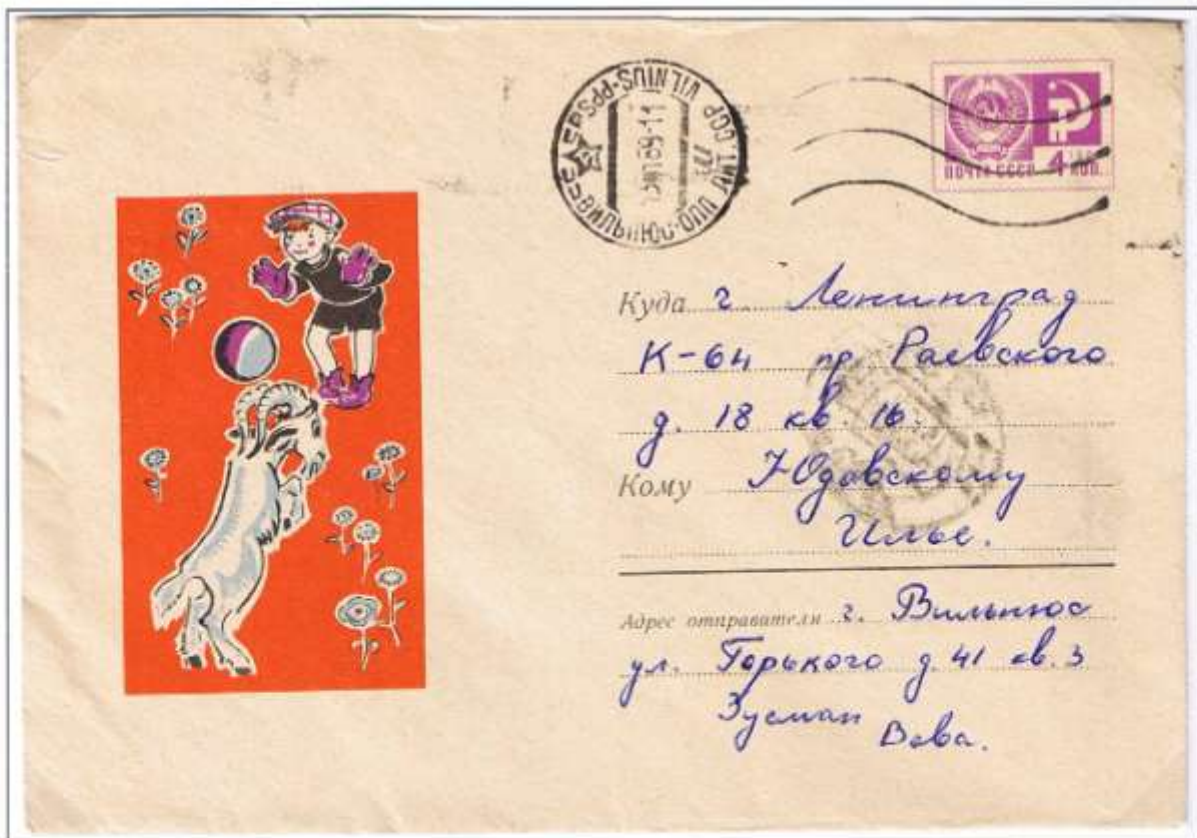 ВИЛЬНЮС-ППО ЛИТ.ССР VILNIUS-PPS
69-11
ПОЧТА СССР 4 КОП.
Куда г Ленинград
К-64 пр Раевского
д. 18 кв. 16.
Кому Юдовскому
Илье.
Адрес отправителя г. Вильнюс
ул. Горького д. 41 кв. 3
Зусман
Вова.